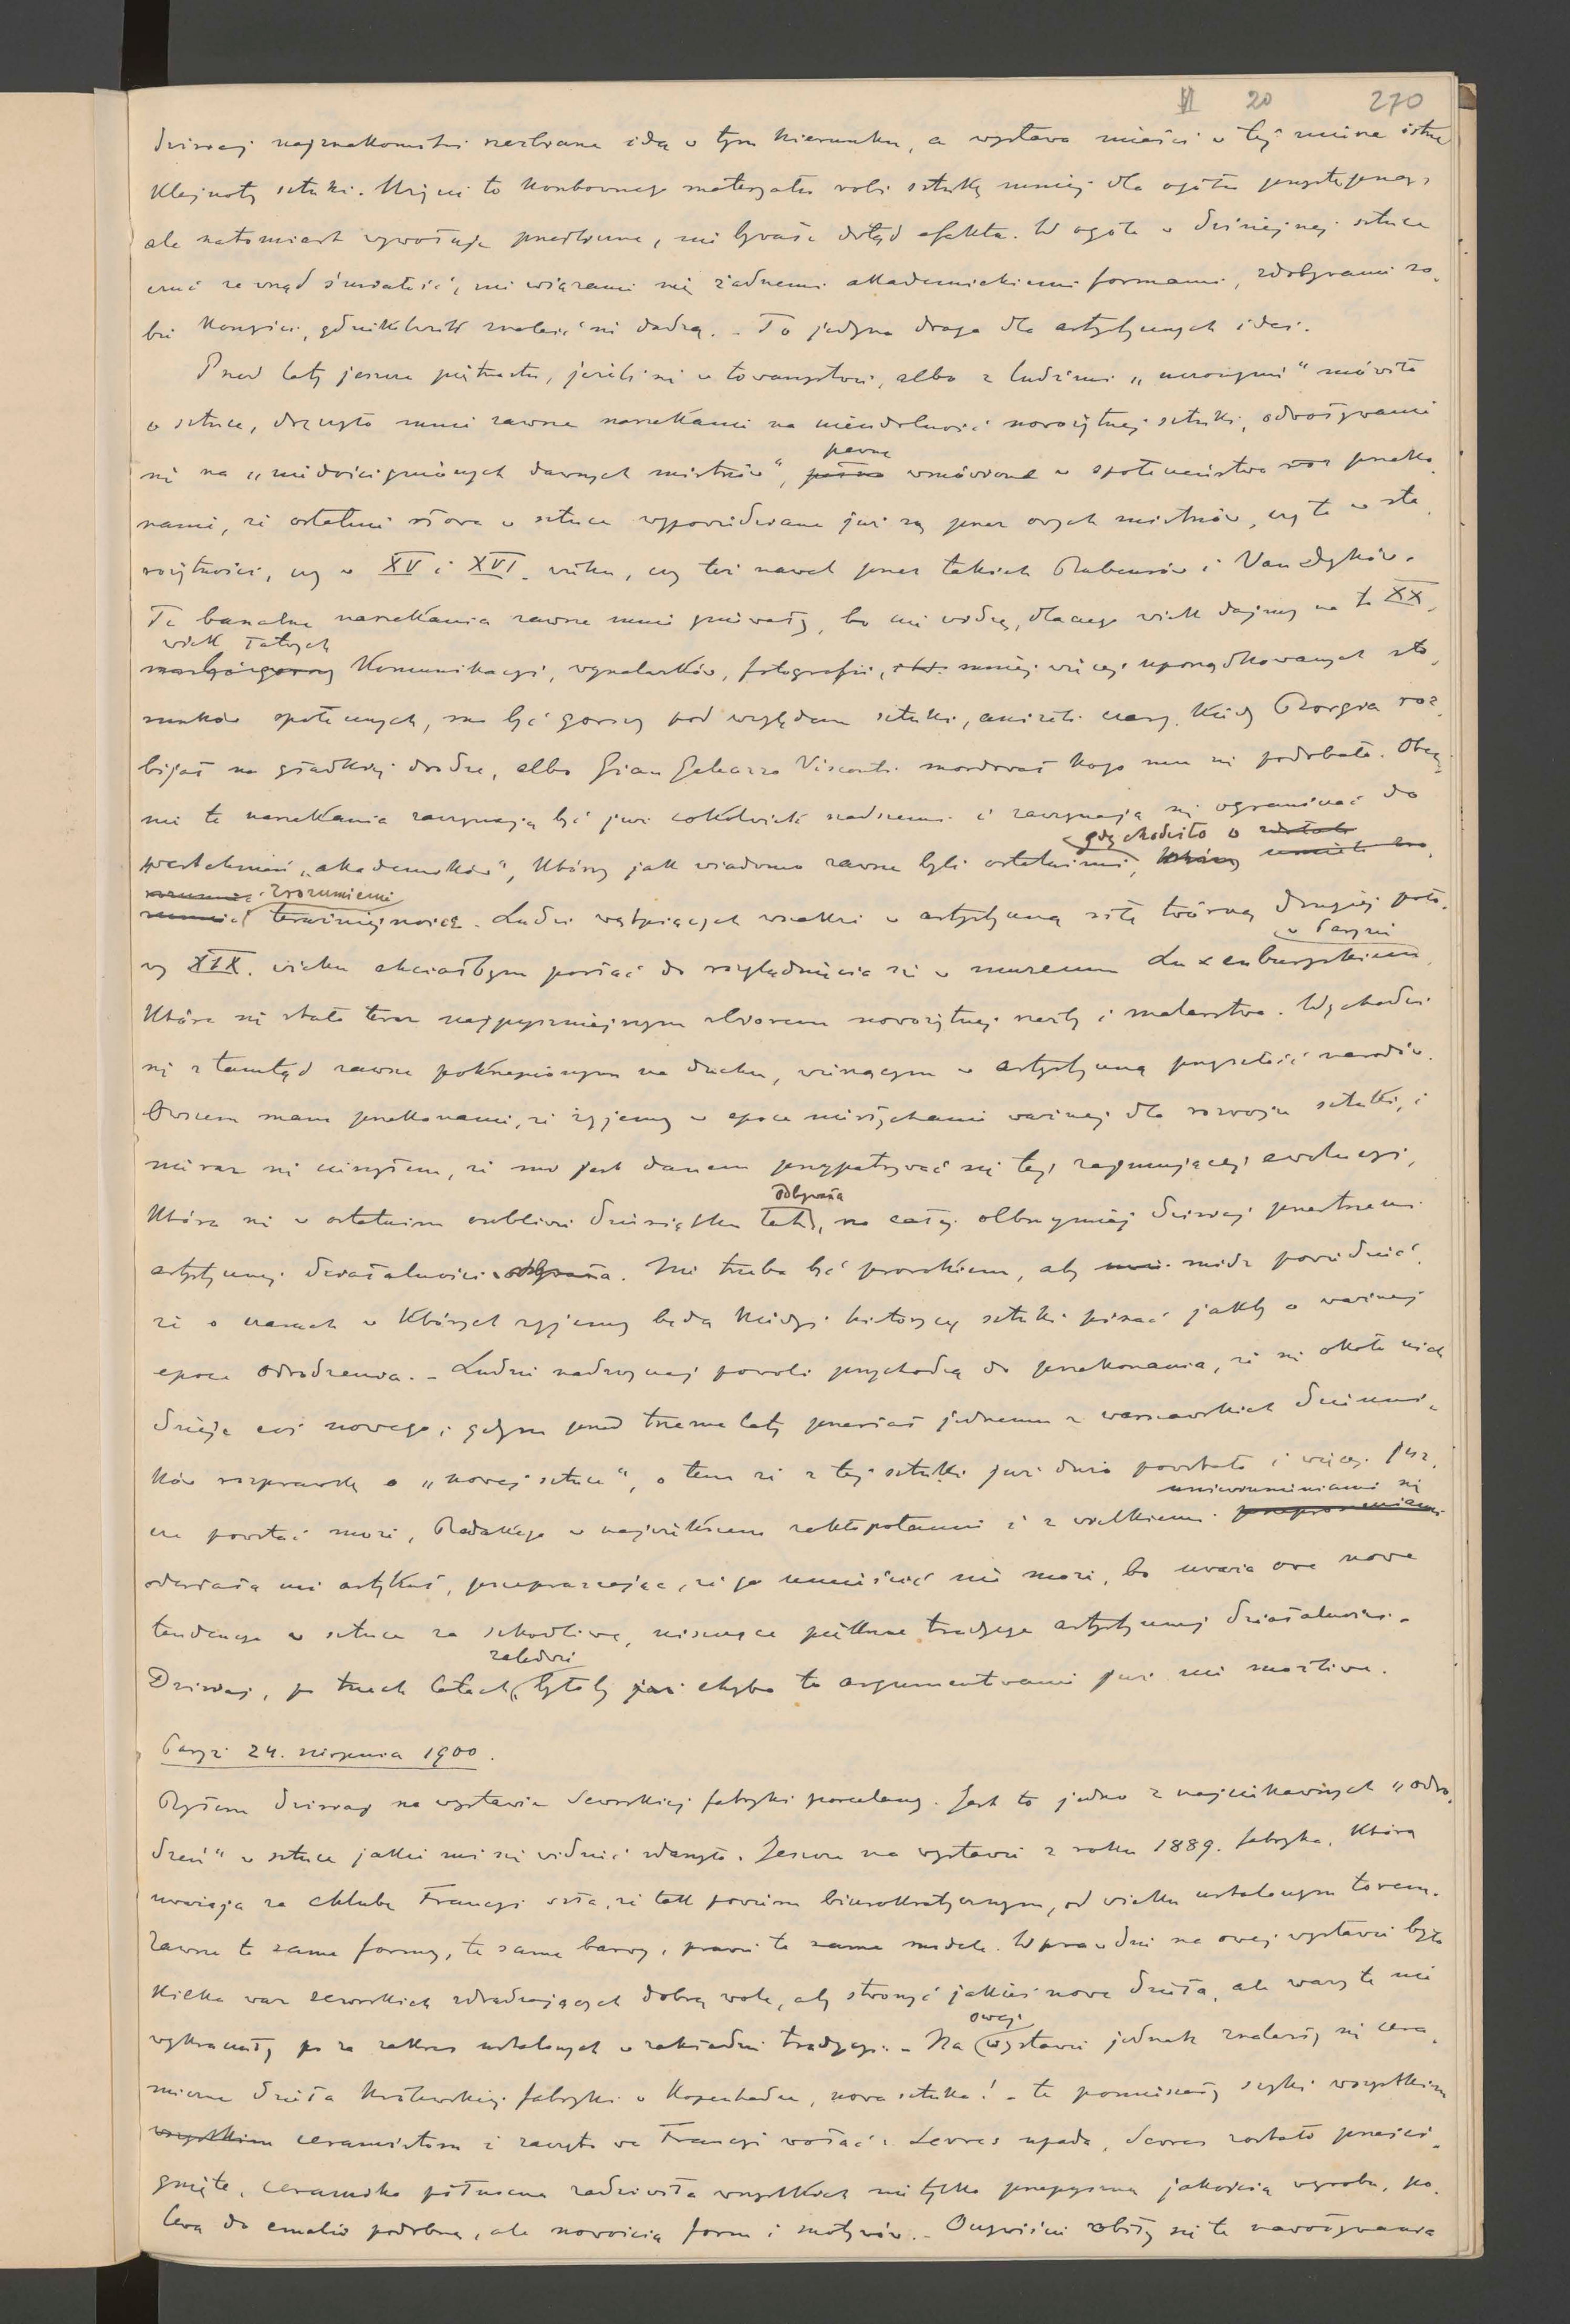 VI 20 270
dzisiaj najznakomitsi rzeźbiarze idą w tym kierunku, a wystawa mieści w tej mierze istne
klejnoty sztuki. Użycie to kosztownego materyału robi sztukę mniej dla ogółu przystępną,
ale natomiast wywołuje prześliczne, nie bywałe dotąd efekta. W ogóle w dzisiejszej sztuce
czuć zewsząd śmiałość, nie wiązanie się żadnemi akademickiemi formami, zdobywanie so-
bie korzyści, gdziekolwiek znaleść się dadzą. - To jedyna droga dla artystycznych idei.
Przed laty jeszcze piętnastu, jeżeli się w towarzystwie, albo z ludźmi „uczonymi" mówiło
o sztuce, drżyło mnie zawsze narzekanie na nieudolność nowożytnej sztuki, odwoływanie
się na „niedoścignionych dawnych mistrzów", pewne wmówione w społeczeństwo przeko-
nanie, że ostatnie słowa w sztuce wypowiedziane już są przez owych mistrzów, czy to w sta-
rożytności, czy w XV i XVI. wieku, czy też nawet przez takich Rubensów i Van Dyków.
Te banalne narzekania zawsze mnie gniewały, bo nie widzę, dlaczego wiek dajmy na to XX.
wiek łatwych
komunikacyi, wynalazków, fotografii, mniej więcej uporządkowanych sto-
sunków społecznych, ma być gorszy pod względem sztuki, aniżeli czasy, kiedy Borgia roz-
bijał na gładkiej drodze, albo Gian Galeazzo Visconti mordował kogo mu się podobało. Obec-
nie te narzekania zaczynają być już cokolwiek rzadszemi i zaczynają się ograniczać do
westchnień „akademików", którzy jak wiadomo zawsze byli ostatnimi, gdy chodziło o
zrozumienie teraźniejszości. Ludzi wątpiących wszakże w artystyczną siłę twórczą drugiej poło-
wy XIX. wieku chciałbym posłać do rozglądnięcia się w muzeum Luxenburgskiem w Paryżu,
które się stało teraz najpyszniejszym zbiorem nowożytnej rzeźby i malarstwa. Wychodzi
się z tamtąd zawsze pokrzepionym na duchu, wierzącym w artystyczną przyszłość narodów.
Owszem mam przekonanie, że żyjemy w epoce niesłychanie ważnej dla rozwoju sztuki, i
nieraz się cieszyłem, że mi jest danem przypatrywać się tej zajmującej ewolucyi,
która się w ostatnim osobliwie dziesiątku lat odbywała, na całej olbrzymiej dzisiaj przestrzeni
artystycznej działalności. Nie trzeba być prorokiem, aby módz powiedzieć,
że o czasach w których żyjemy będą kiedyś historycy sztuki pisać jakby o ważnej
epoce odrodzenia. - Ludzie nadzwyczaj powoli przychodzą do przekonania, że się około nich
dzieje coś nowego; gdym przed trzema laty przesłał jednemu z warszawskich dzienni-
ków rozprawkę o „nowej sztuce", o tem że z tej sztuki już dużo powstało i więcej jesz-
cze powstać może, Redakcya w największem zakłopotaniu i z wielkiemi uniewinnianiami się
odesłała mi artykuł, przepraszając, że go umieścić nie może, bo uważa owe nowe
tendencye w sztuce za szkodliwe, niszczące piękne tradycye artystycznej działalności.
Dzisiaj, po trzech latach zaledwie, byłoby chyba to argumentowanie już nie możliwe.
Paryż 24. sierpnia 1900.
Byłem dzisiaj na wystawie Sewrskiej fabryki porcelany. Jest to jedno z najciekawszych „odro-
dzeń" w sztuce jakie mi się widzieć zdarzyło. Jeszcze na wystawie z roku 1889. fabryka, którą
uważają za chlubę Francyi szła, że tak powiem biurokratycznym, od wieku ustalonym torem.
Zawsze te same formy, te same barwy, prawie te same modele. Wprawdzie na owej wystawie było
kilka waz sewrskich zdradzających dobrą wolę, aby stworzyć jakieś nowe dzieła, ale wazy te nie
wykraczały po za zakres ustalonych w zakładzie tradycyi. - Na owej wystawie jednak znalazły się cera-
miczne dzieła królewskiej fabryki w Kopenhadze, nowa sztuka! - te pomieszały szyki wszystkim
wszystkim ceramistom i zaczęto we Francyi wołać: Sevres upada, Sevres zostało prześci-
gnięte, ceramika północna zadziwiła wszystkich nie tylko przepyszną jakością wyrobu, po-
lewą do emalii podobną, ale nowością form i motywów. - Oczywiście odbiły się te nawoływania